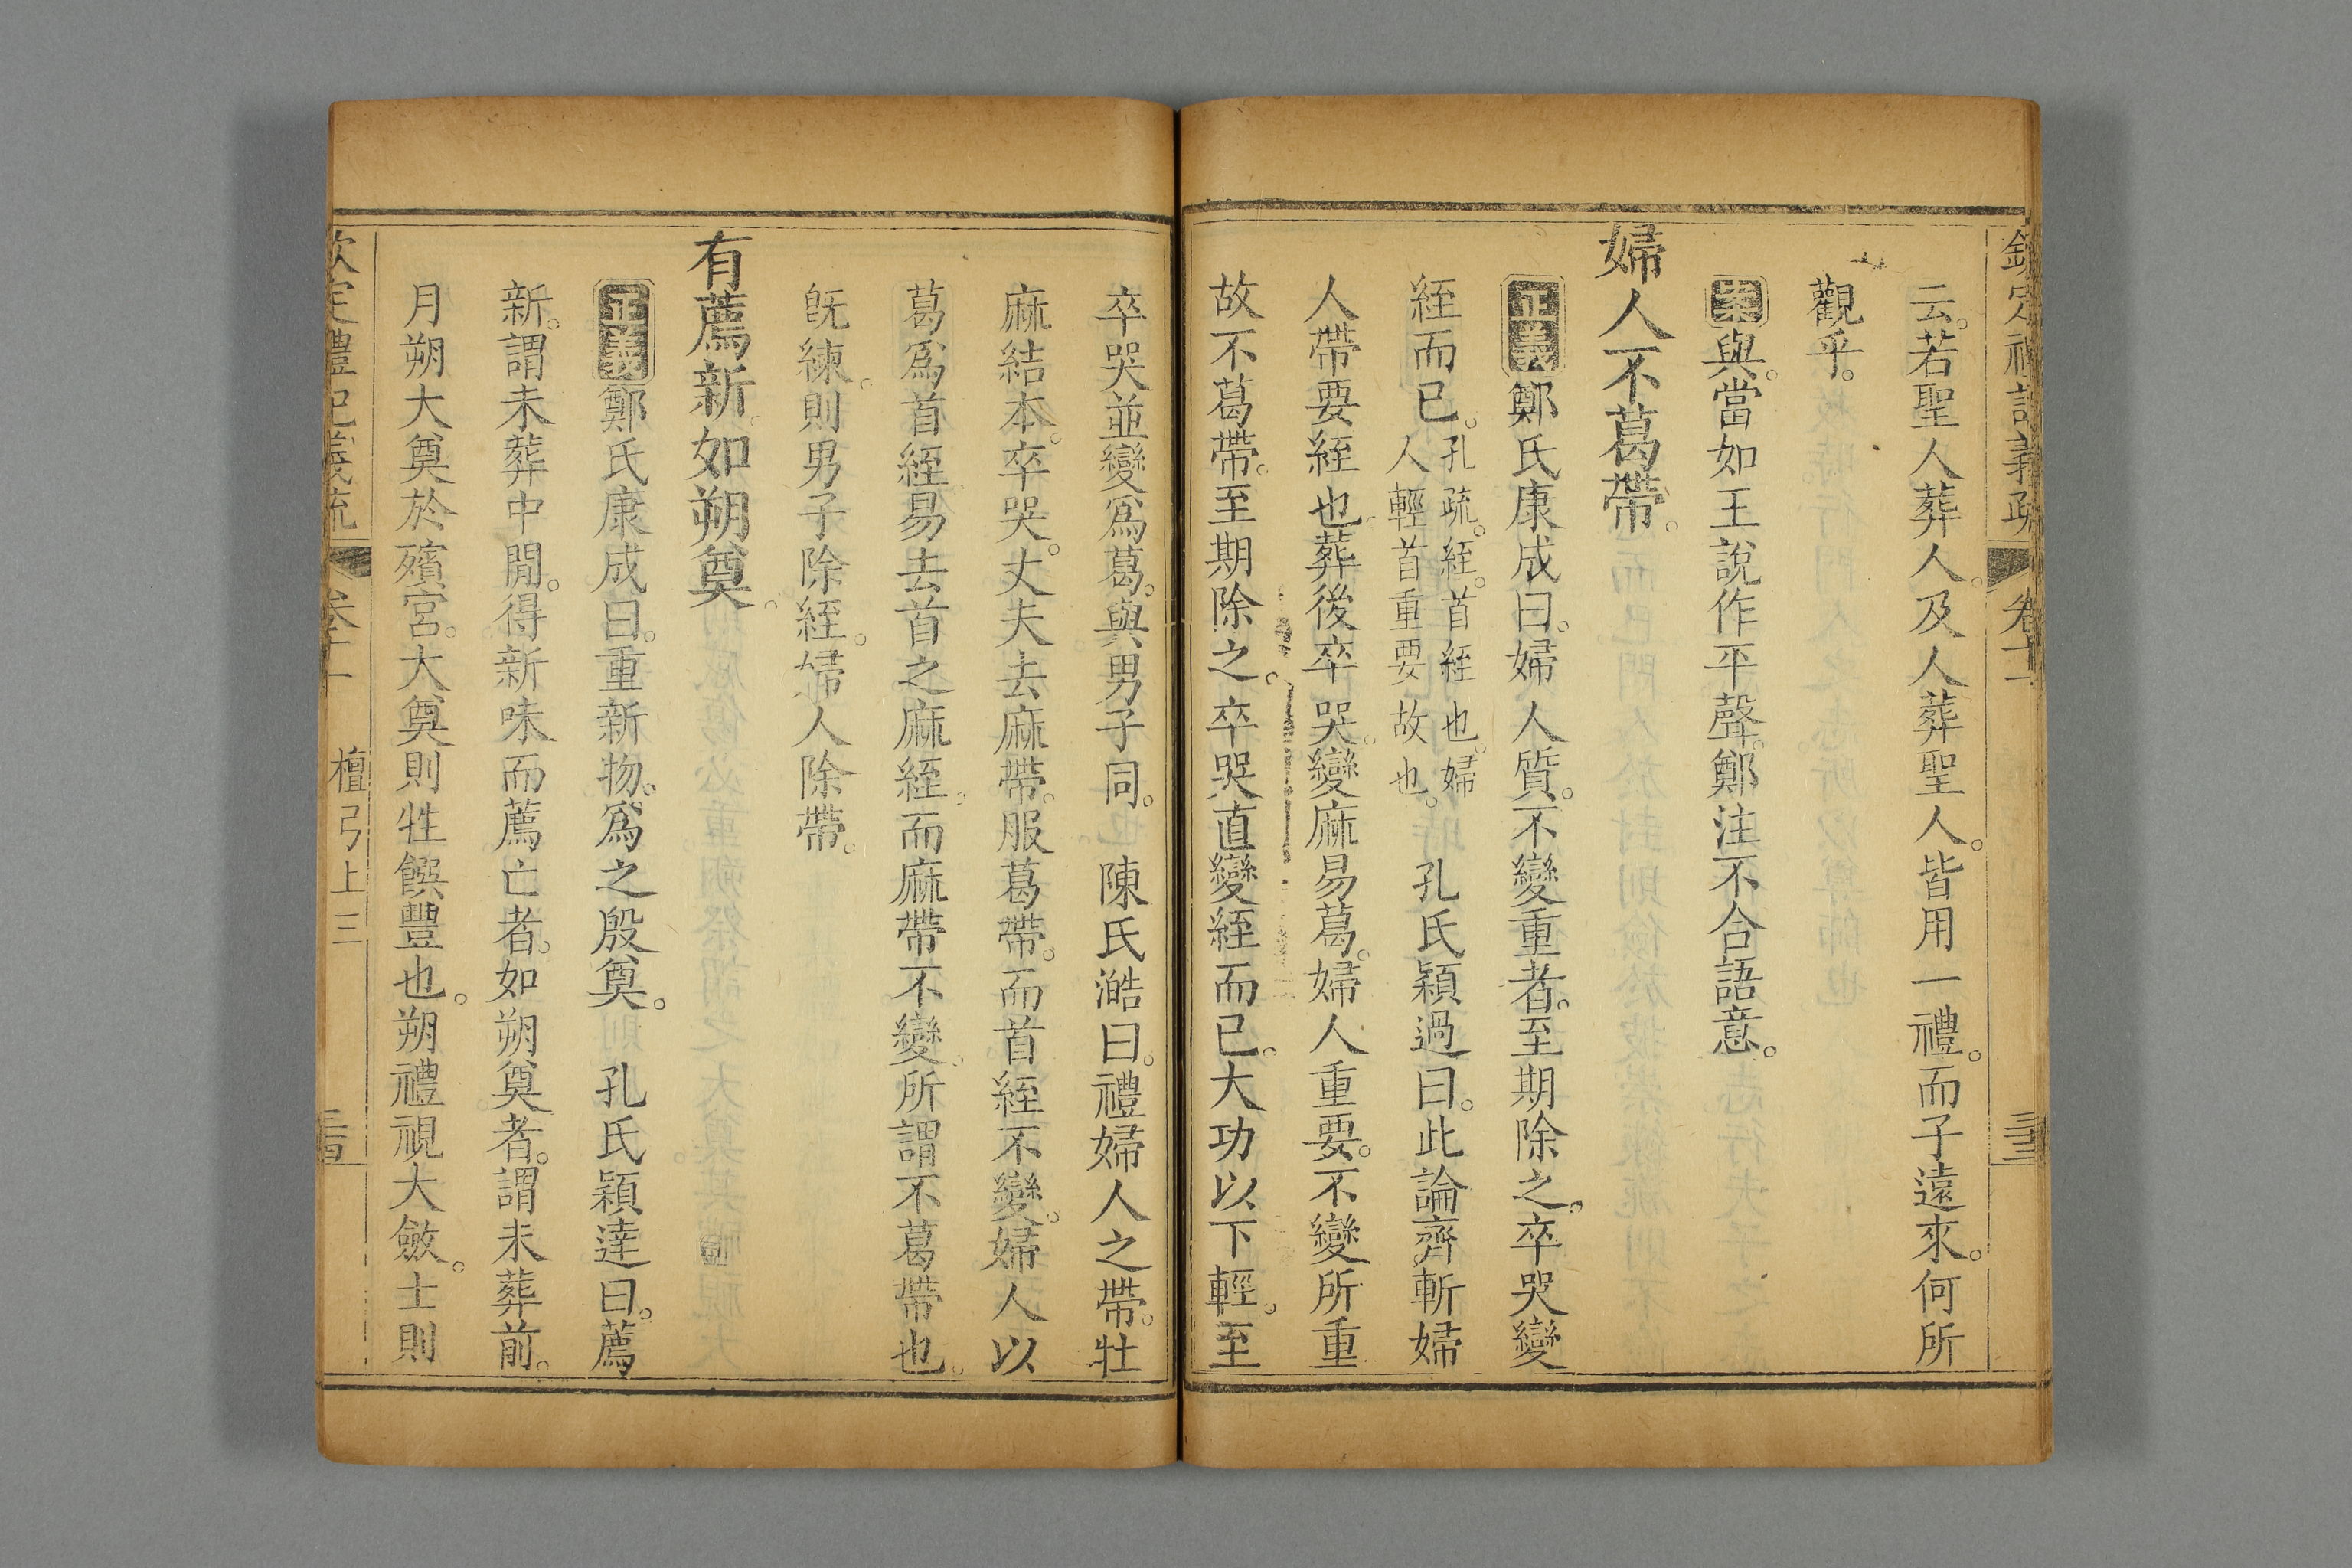 欽定禮記義疏 卷十一 三三
云。若聖人葬人。及人葬聖人。皆用一禮。而子遠來。何所
觀乎。
案與。當如王說作平聲。鄭注不合語意。
婦人不葛帶。
正義鄭氏康成曰。婦人質。不變重者。至期除之。卒哭變
絰而已。孔疏。絰。首絰也。婦人輕首重要故也。 孔氏穎過曰。此論齊斬婦
人帶要絰也。葬後卒哭。變麻易葛。婦人重要。不變所重
故不葛帶。至期除之。卒哭直變絰而已。大功以下輕。至
卒哭並變爲葛。與男子同。 陳氏澔曰。禮婦人之帶。牡
麻結本。卒哭。丈夫去麻帶。服葛帶。而首絰不變。婦人以
葛爲首絰。易去首之麻絰。而麻帶不變。所謂不葛帶也。
旣練。則男子除絰。婦人除帶。
有薦新如朔奠。
正義鄭氏康成曰。重新物。爲之殷奠。 孔氏穎達曰。薦
新。謂未葬中閒。得新味而薦亡者。如朔奠者。謂未葬前。
月朔大奠於殯宮。大奠則牲饌豐也。朔禮視大斂。士則
欽定禮記義疏 卷十一 檀弓上三